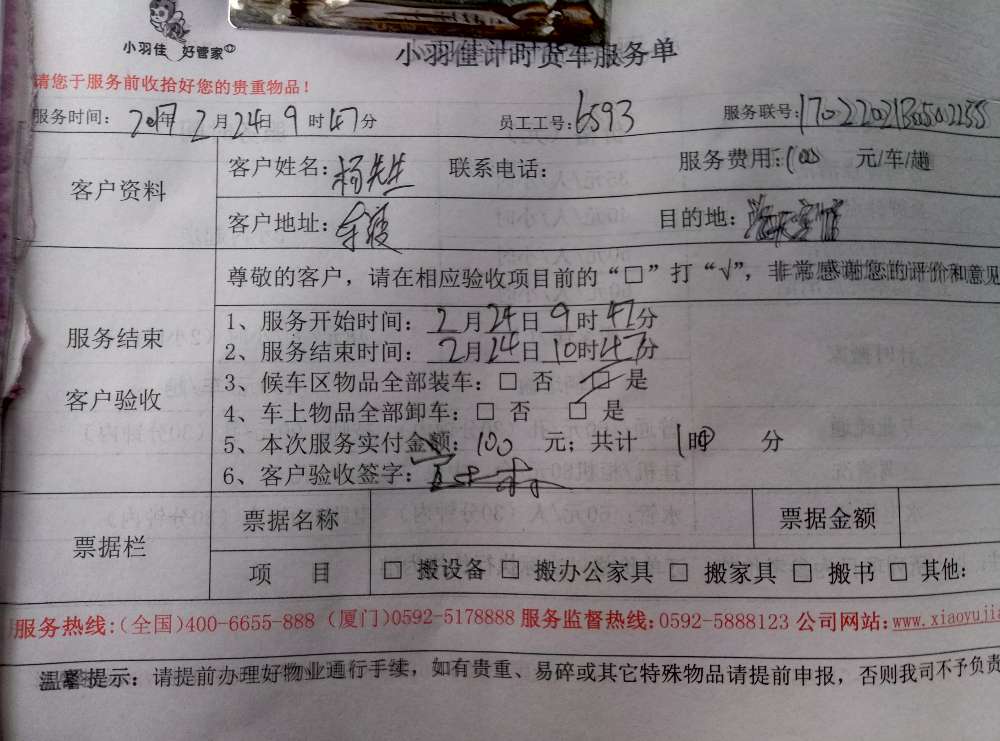 小羽佳 好管家
小羽佳计时货车服务单
请您于服务前收拾好您的贵重物品！
服务时间：2017年2月24日9时47分 员工工号：6593 服务联号：
客户资料 客户姓名：杨先生 联系电话： 服务费用：100元/车/趟
客户地址： 目的地：
服务结束 客户验收
尊敬的客户，请在相应验收项目前的“□”打“√”，非常感谢您的评价和意见
1、服务开始时间：2月24日9时47分
2、服务结束时间：2月24日10时47分
3、候车区物品全部装车：□ 否 □ 是
4、车上物品全部卸车：□ 否 □ 是
5、本次服务实付金额：100 元；共计 1时 分
6、客户验收签字：
票据栏 票据名称 票据金额
项 目 □ 搬设备 □ 搬办公家具 □ 搬家具 □ 搬书 □ 其他：
服务热线：(全国)400-6655-888 (厦门)0592-5178888 服务监督热线：0592-5888123 公司网站：www.xiaoyujia
温馨提示：请提前办理好物业通行手续，如有贵重、易碎或其它特殊物品请提前申报，否则我司不予负责